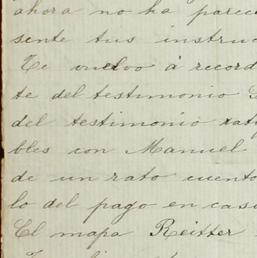 ahora no ha parec
sente tus instruc
Te vuelvo á record
te del testimonio
del testimonio
bles con Manuel
de un rato cuento
lo del pago en cas
El mapa Reitter